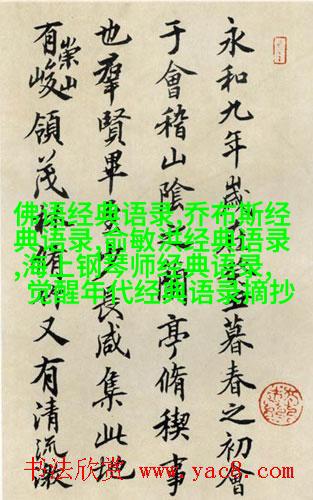 永和九年歲在癸丑暮春之初會
于會稽山陰之蘭亭脩稧事
也羣賢畢至少長咸集此地
有崇山峻領茂林脩竹又有清流激
佛语经典语录,乔布斯经
典语录,俞敏洪经典语录
,海上钢琴师经典语录,
觉醒年代经典语录摘抄
书法欣赏 www.yac8.com